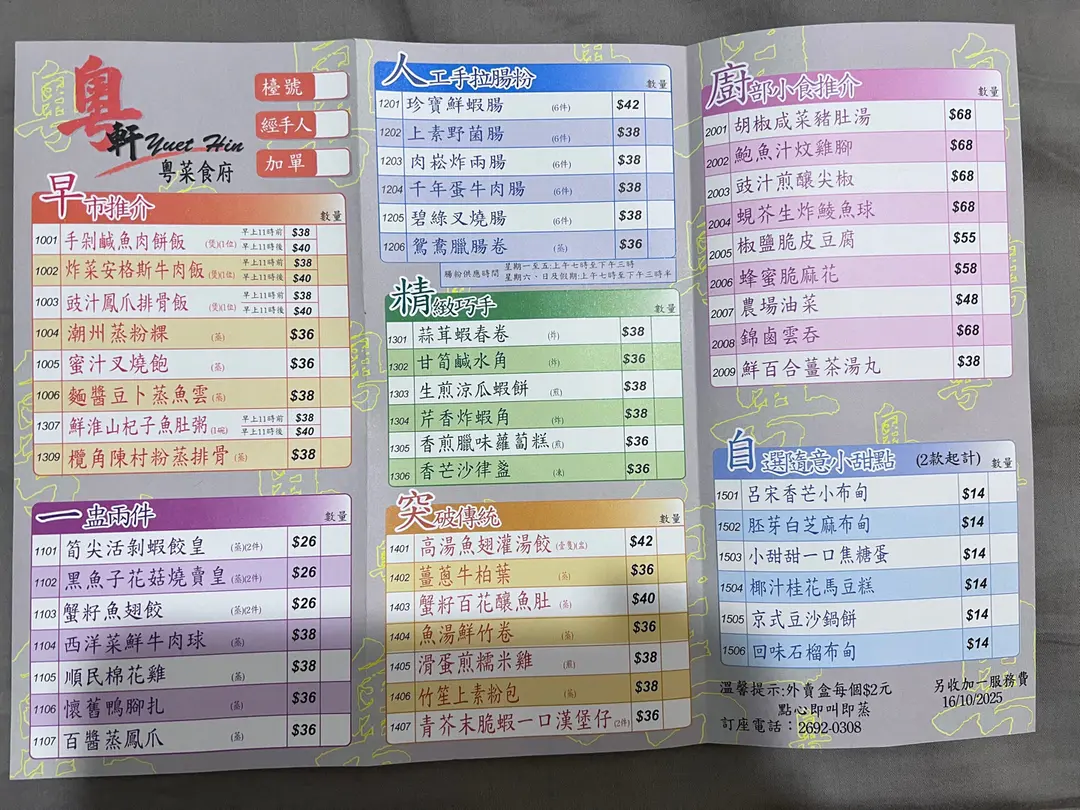 粵軒 Yuet Hin
粵菜食府
檯號
經手人
加單
早市推介 數量
1001 手剁鹹魚肉餅飯 (煲)(1位) 早上11時前 $38
早上11時後 $40
1002 炸菜安格斯牛肉飯 (煲)(1位) 早上11時前 $38
早上11時後 $40
1003 豉汁鳳爪排骨飯 (煲)(1位) 早上11時前 $38
早上11時後 $40
1004 潮州蒸粉粿 (蒸) $36
1005 蜜汁叉燒飽 (蒸) $36
1006 麵醬豆卜蒸魚雲 (蒸) $38
1307 鮮淮山杞子魚肚粥 (1碗) 早上11時前 $38
早上11時後 $40
1309 欖角陳村粉蒸排骨 (蒸) $38
一盅兩件 數量
1101 筍尖活剝蝦餃皇 (蒸)(2件) $26
1102 黑魚子花菇燒賣皇 (蒸)(2件) $26
1103 蟹籽魚翅餃 (蒸)(2件) $26
1104 西洋菜鮮牛肉球 (蒸) $38
1105 順民棉花雞 (蒸) $38
1106 懷舊鴨腳扎 (蒸) $36
1107 百醬蒸鳳爪 (蒸) $36
人工手拉腸粉 數量
1201 珍寶鮮蝦腸 (6件) $42
1202 上素野菌腸 (6件) $38
1203 肉崧炸兩腸 (6件) $38
1204 千年蛋牛肉腸 (6件) $38
1205 碧綠叉燒腸 (6件) $38
1206 鴛鴦臘腸卷 (蒸) $36
腸粉供應時間 星期一至五:上午七時至下午三時
星期六、日及假期:上午七時至下午三時半
精緻巧手 數量
1301 蒜茸蝦春卷 (炸) $38
1302 甘筍鹹水角 (炸) $36
1303 生煎涼瓜蝦餅 (煎) $38
1304 芹香炸蝦角 (炸) $38
1305 香煎臘味蘿蔔糕 (煎) $36
1306 香芒沙律盞 (凍) $36
突破傳統 數量
1401 高湯魚翅灌湯餃 (壹隻)(盅) $42
1402 薑蔥牛柏葉 (蒸) $36
1403 蟹籽百花釀魚肚 (蒸) $40
1404 魚湯鮮竹卷 (蒸) $36
1405 滑蛋煎糯米雞 (煎) $38
1406 竹笙上素粉包 (蒸) $38
1407 青芥末脆蝦一口漢堡仔 (2件) $36
廚部小食推介 數量
2001 胡椒咸菜豬肚湯 $68
2002 鮑魚汁炆雞腳 $68
2003 豉汁煎釀尖椒 $68
2004 蜆芥生炸鯪魚球 $68
2005 椒鹽脆皮豆腐 $55
2006 蜂蜜脆麻花 $58
2007 農場油菜 $48
2008 錦鹵雲吞 $68
2009 鮮百合薑茶湯丸 $38
自選隨意小甜點 (2款起計) 數量
1501 呂宋香芒小布甸 $14
1502 胚芽白芝麻布甸 $14
1503 小甜甜一口焦糖蛋 $14
1504 椰汁桂花馬豆糕 $14
1505 京式豆沙鍋餅 $14
1506 回味石榴布甸 $14
溫馨提示:外賣盒每個$2元
點心即叫即蒸
訂座電話：2692-0308
另收加一服務費
16/10/2025